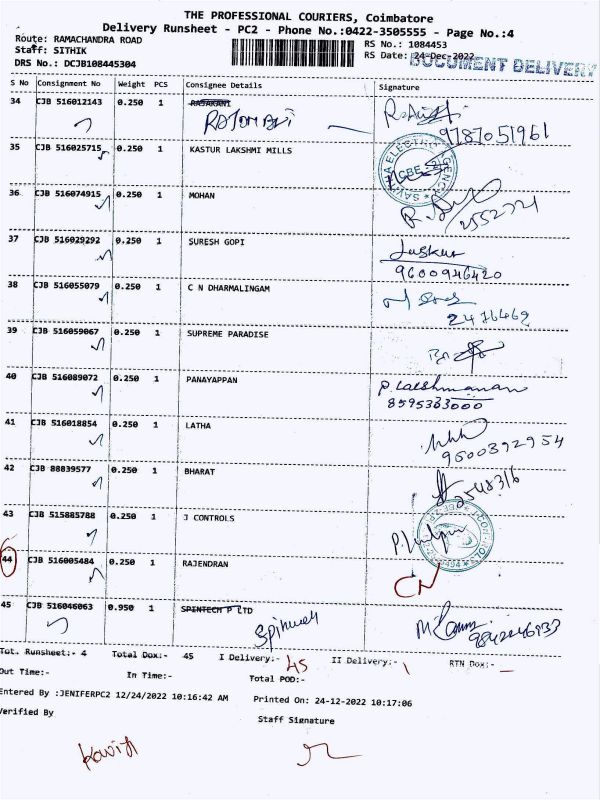 THE PROFESSIONAL COURIERS, Coimbatore
Delivery Runsheet - PC2 - Phone No.:0422-3505555 - Page No.:4
Route: RAMACHANDRA ROAD
RS No.: 1084453
Staff: SITHIK
RS Date: 24-Dec-2022
DOCUMENT DELIVERY
DRS No.: DCJB108445304
S No Consignment No Weight PCS Consignee Details Signature
34 CJB 516012143 0.250 1 RAJAKANI
9787051961
35 CJB 516025715 0.250 1 KASTUR LAKSHMI MILLS
36 CJB 516074915 0.250 1 MOHAN
2552721
37 CJB 516029292 0.250 1 SURESH GOPI
9600946420
38 CJB 516055079 0.250 1 C N DHARMALINGAM
2476462
39 CJB 516059067 0.250 1 SUPREME PARADISE
40 CJB 516089072 0.250 1 PANAYAPPAN P. Lakshmanan
8595383000
41 CJB 516018854 0.250 1 LATHA
9500392954
42 CJB 88839577 0.250 1 BHARAT
2548316
43 CJB 515885788 0.250 1 J CONTROLS
44 CJB 516005484 0.250 1 RAJENDRAN CN
45 CJB 516046063 0.950 1 SPINTECH P LTD
9842246933
Tot. Runsheet:- 4 Total Dox:- 45 I Delivery:- 45 II Delivery:- 1 RTN Dox:- -
Out Time:- In Time:- Total POD:-
Entered By :JENIFERPC2 12/24/2022 10:16:42 AM Printed On: 24-12-2022 10:17:06
Verified By Staff Signature